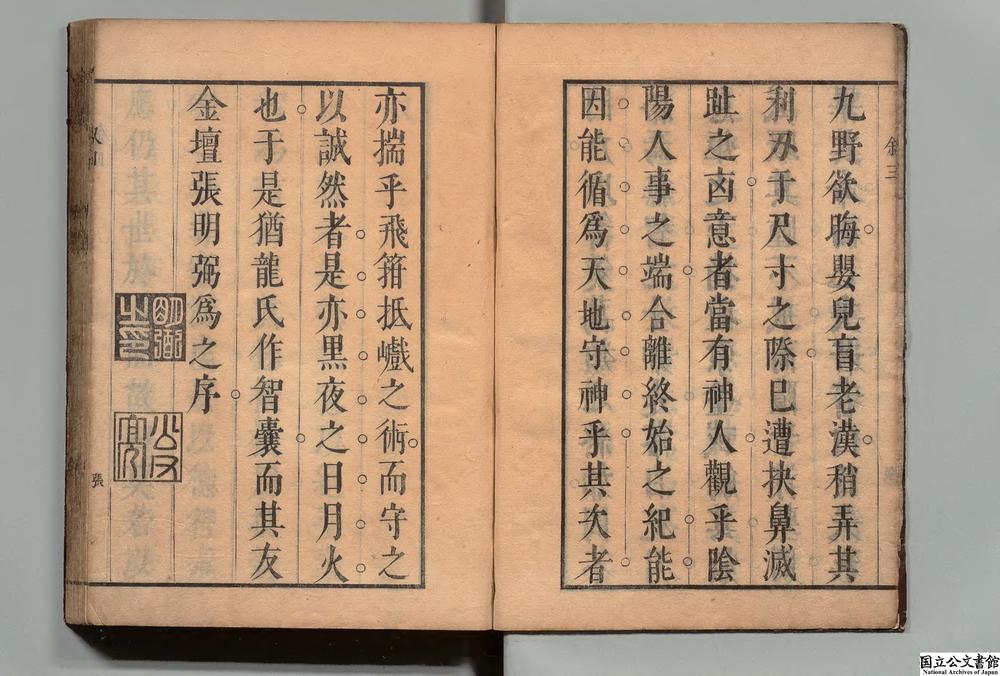 九野欲晦嬰兒盲老漢稍弄其
利刃于尺寸之際巳遭抉鼻滅
趾之凶意者當有神人觀乎陰
陽人事之端合離終始之紀能
因能循爲天地守神乎其次者
亦揣乎飛箝抵巇之術而守之
以誠然者是亦黑夜之日月火
也于是猶龍氏作智囊而其友
金壇張明弼爲之序
明弼之印
張
国立公文書館
National Archives of Japan